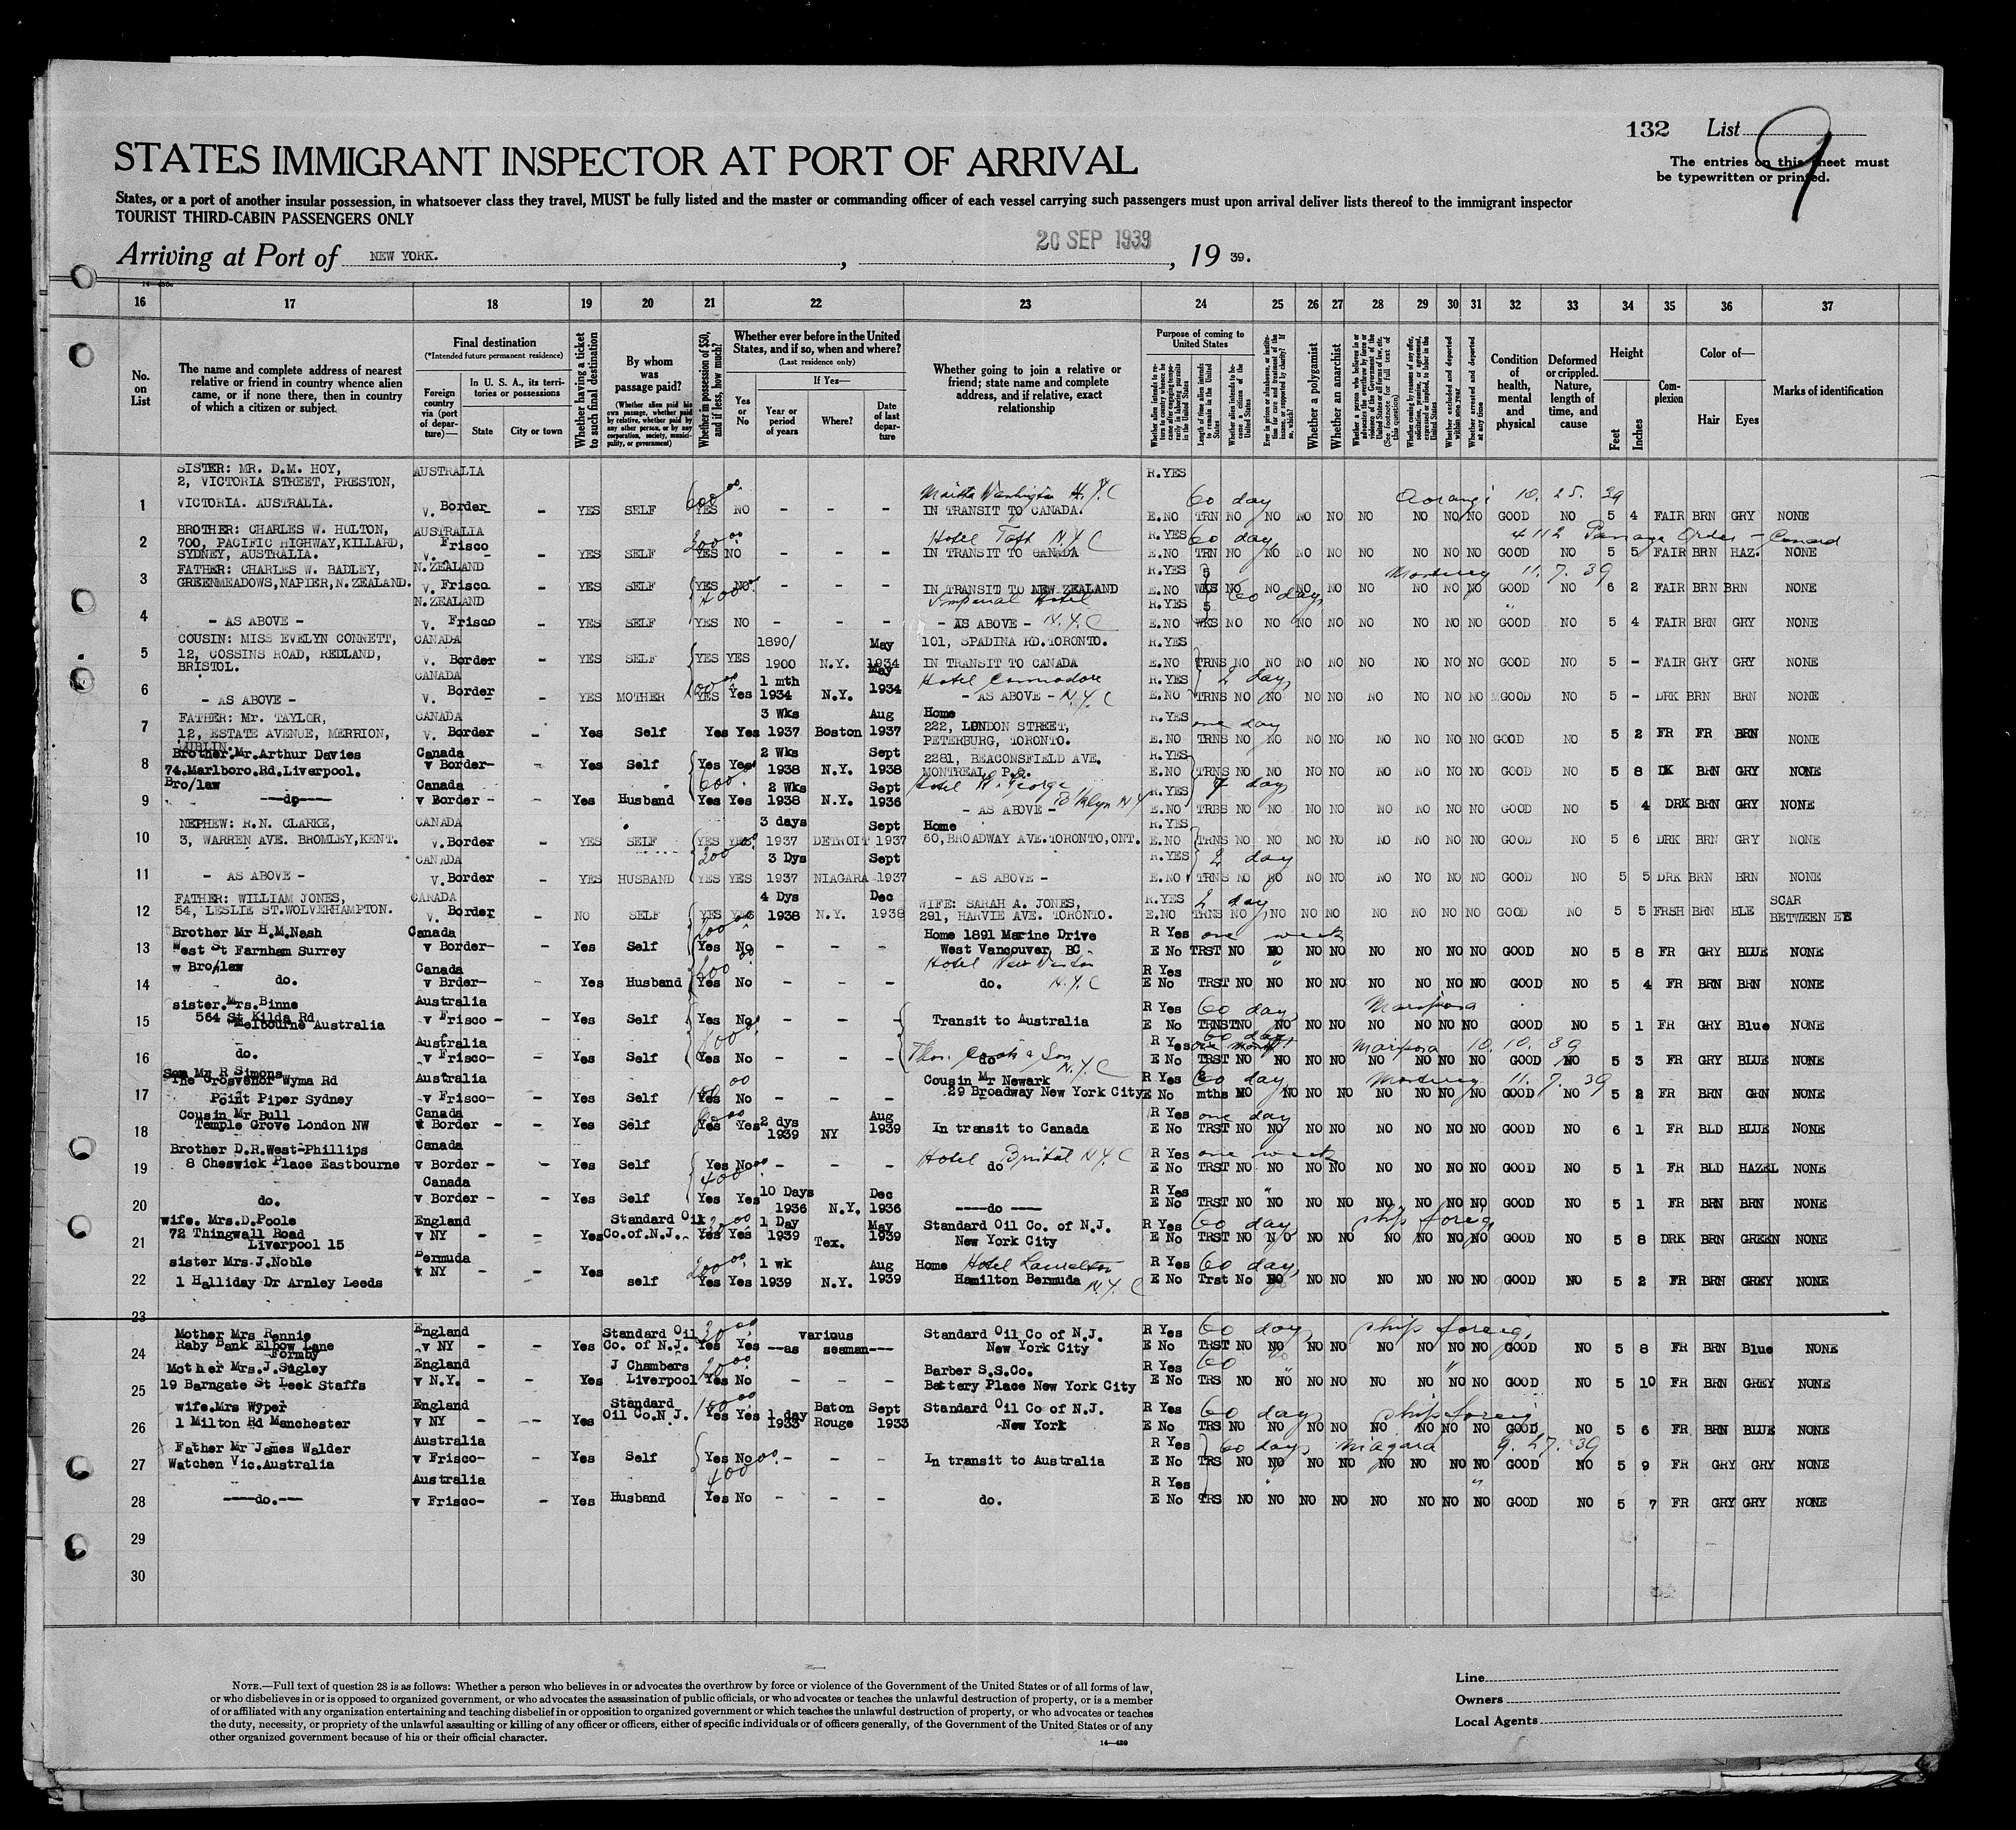 132 List 9
The entries on this sheet must
be typewritten or printed.
STATES IMMIGRANT INSPECTOR AT PORT OF ARRIVAL
States, or a port of another insular possession, in whatsoever class they travel, MUST be fully listed and the master or commanding officer of each vessel carrying such passengers must upon arrival deliver lists thereof to the immigrant inspector
TOURIST THIRD-CABIN PASSENGERS ONLY
Arriving at Port of NEW YORK. , 20 SEP 1939 , 19 39.
16 17 18 19 20 21 22 23 24 25 26 27 28 29 30 31 32 33 34 35 36 37
No. on List
The name and complete address of nearest relative or friend in country whence alien came, or if none there, then in country of which a citizen or subject
Final destination
(*Intended future permanent residence)
Foreign country via (port of departure)—
In U. S. A., its territories or possessions
State City or town
Whether having a ticket to such final destination
By whom was passage paid?
(Whether alien paid his own passage, whether paid by relative, whether paid by any other person, or by any corporation, society, municipality, or government)
Whether in possession of $50, and if less, how much?
Whether ever before in the United States, and if so, when and where?
(Last residence only)
Yes or No
If Yes—
Year or period of years Where? Date of last departure
Whether going to join a relative or friend; state name and complete address, and if relative, exact relationship
Purpose of coming to United States
Length of time alien intends to remain in the United States
Whether alien intends to become a citizen of the United States
Whether a polygamist
Whether an anarchist
Condition of health, mental and physical
Deformed or crippled. Nature, length of time, and cause
Height
Feet Inches
Complexion
Color of—
Hair Eyes
Marks of identification
SISTER: MR. D.M. HOY, AUSTRALIA R.YES
2, VICTORIA STREET, PRESTON, 600.00 Martha Washington N.Y.C 60 days Aorangi 10. 25. 39
1 VICTORIA. AUSTRALIA. V. Border - YES SELF YES NO - - - IN TRANSIT TO CANADA. E.NO TRN NO NO NO NO NO NO NO NO GOOD NO 5 4 FAIR BRN GRY NONE
BROTHER: CHARLES W. HULTON, AUSTRALIA Hotel Taft N.Y.C R.YES 60 days 4112 Passage Order - Cunard
2 700, PACIFIC HIGHWAY,KILLARD, Frisco
SYDNEY, AUSTRALIA. V. - YES SELF YES NO - - - IN TRANSIT TO CANADA E.NO TRN NO NO NO NO NO NO NO NO GOOD NO 5 5 FAIR BRN HAZ. NONE
FATHER: CHARLES W. BADLEY, N.ZEALAND R.YES 5 Monterey 11. 7. 39
3 GREENMEADOWS,NAPIER,N.ZEALAND. V. Frisco - YES SELF YES NO - - - IN TRANSIT TO NEW ZEALAND E.NO WKS NO NO NO NO NO NO NO NO GOOD NO 6 2 FAIR BRN BRN NONE
N.ZEALAND 400 Imperial Hotel R.YES 5 60 days
4 - AS ABOVE - V. Frisco - YES SELF YES NO - - - - AS ABOVE - N.Y.C E.NO WKS NO NO NO NO NO NO NO NO GOOD NO 5 4 FAIR BRN GRY NONE
COUSIN: MISS EVELYN CONNETT, CANADA 1890/ May 101, SPADINA RD.TORONTO. R.YES
5 12, COSSINS ROAD, REDLAND, V. Border - YES SELF YES YES 1900 N.Y. 1934 IN TRANSIT TO CANADA E.NO TRNS NO NO NO NO NO NO NO NO GOOD NO 5 - FAIR GRY GRY NONE
BRISTOL.
CANADA 1 mth May Hotel Commodore R.YES 2 days
6 - AS ABOVE - V. Border - YES MOTHER YES Yes 1934 N.Y. 1934 - AS ABOVE - N.Y.C E.NO TRNS NO NO NO NO NO NO NO NO GOOD NO 5 - DRK BRN BRN NONE
FATHER: Mr. TAYLOR, CANADA 3 Wks Aug Home R.YES one day
7 12, ESTATE AVENUE, MERRION, V. Border - Yes Self Yes Yes 1937 Boston 1937 222, LONDON STREET,
DUBLIN. PETERBURG, TORONTO. E.NO TRNS NO NO NO NO NO NO NO NO GOOD NO 5 2 FR FR BRN NONE
Brother.Mr.Arthur Davies Canada 2 Wks Sept 2281, BEACONSFIELD AVE. R.YES
8 74.Marlboro.Rd.Liverpool. v Border- - Yes Self Yes Yes 1938 N.Y. 1938 MONTREAL P.Q. E.NO TRNS NO NO NO NO NO NO NO NO GOOD NO 5 8 DK BRN GRY NONE
Bro/law Canada 600 2 Wks Sept Hotel St. George R.YES 7 days
9 ---do---- v Border - - Yes Husband Yes Yes 1938 N.Y. 1936 - AS ABOVE - B'klyn N.Y E.NO TRBS NO NO NO NO NO NO NO NO GOOD NO 5 4 DRK BRN GRY NONE
NEPHEW: R.N. CLARKE, CANADA 3 days Sept Home R.YES
10 3, WARREN AVE. BROMLEY,KENT. V.Border - YES SELF YES YES 1937 DETROIT 1937 60,BROADWAY AVE.TORONTO,ONT. E.NO TRNS NO NO NO NO NO NO NO NO GOOD NO 5 6 DRK BRN GRY NONE
CANADA 200 3 Dys Sept R.YES 2 days
11 - AS ABOVE - V.Border - YES HUSBAND YES YES 1937 NIAGARA 1937 - AS ABOVE - E.NO TRNS NO NO NO NO NO NO NO NO GOOD NO 5 5 DRK BRN BRN NONE
FATHER: WILLIAM JONES, CANADA 4 Dys Dec WIFE: SARAH A. JONES, R.YES 2 days SCAR
12 54, LESLIE ST.WOLVERHAMPTON. V. Border - NO SELF YES YES 1938 N.Y. 1938 291, HARVIE AVE. TORONTO. E.NO TRNS NO NO NO NO NO NO NO NO GOOD NO 5 5 FRSH BRN BLE BETWEEN EYE
Brother Mr H.M.Nash Canada Home 1891 Marine Drive R Yes one week
13 West St Farnham Surrey v Border- - Yes Self Yes No - - - West Vancouver, BC E No TRST NO NO NO NO NO NO NO NO GOOD NO 5 8 FR GRY BLUE NONE
w Bro/law Canada 600 Hotel New Weston R Yes "
14 do. v Brder- - Yes Husband Yes No - - - do. N.Y.C E No TRST NO NO NO NO NO NO NO NO GOOD NO 5 4 FR BRN BRN NONE
sister.Mrs.Binne Australia R Yes 60 days Mariposa
15 564 St Kilda Rd v Frisco - - Yes Self Yes No - - - Transit to Australia E No TRNST NO NO NO NO NO NO NO NO GOOD NO 5 1 FR GRY Blue NONE
Melbourne Australia
Australia R Yes 60 days one month Mariposa 10. 10. 39
16 do. v Frisco- - Yes Self Yes No - - - do Thos. Cook & Son N.Y.C E No TRST NO NO NO NO NO NO NO NO GOOD NO 5 3 FR GRY BLUE NONE
Son Mr R Simons
The Grosvenor Wyma Rd Australia Cousin Mr Newark R Yes 2 60 days Monterey 11. 7. 39
17 Point Piper Sydney v Frisco- - Yes Self Yes No - - - 29 Broadway New York City E No mths NO NO NO NO NO NO NO NO GOOD NO 5 2 FR BRN GRN NONE
Cousin Mr Bull Canada Aug R Yes one day
18 Temple Grove London NW v Border - - Yes Self Yes Yes 2 dys 1939 NY 1939 In transit to Canada E No TRST NO NO NO NO NO NO NO NO GOOD NO 6 1 FR BLD BLUE NONE
Brother D.R.West-Phillips Canada Hotel Bristol N.Y.C R Yes one week
19 8 Cheswick Place Eastbourne v Border - - Yes Self Yes No - - - do E No TRST NO NO NO NO NO NO NO NO GOOD NO 5 1 FR BLD HAZEL NONE
Canada 400 10 Days Dec R Yes "
20 do. v Border - - Yes Self Yes Yes 1936 N.Y. 1936 ----do---- E No TRST NO NO NO NO NO NO NO NO GOOD NO 5 1 FR BRN BRN NONE
wife. Mrs.D.Poole England Standard Oil 1 Day May Standard Oil Co. of N.J. R Yes 60 days ship foreign
21 72 Thingwall Road v NY - - Yes Co.of.N.J. Yes Yes 1939 Tex. 1939 New York City E No TRST NO NO NO NO NO NO NO NO GOOD NO 5 8 DRK BRN GREEN NONE
Liverpool 15
sister Mrs J.Noble Bermuda 200.00 1 wk Aug Home Hotel Laurelton R Yes 60 days
22 1 Halliday Dr Arnley Leeds v NY - - Yes self Yes Yes 1939 N.Y. 1939 Hamilton Bermuda N.Y.C E No Trst No NO NO NO NO NO NO NO GOOD NO 5 2 FR BRN GREY NONE
23
Mother Mrs Rennie England Standard Oil various Standard Oil Co of N.J. R Yes 60 days ship foreign
24 Raby Bank Elbow Lane v NY - - Yes Co. of N.J. Yes Yes --as seaman--- New York City E No TRST NO NO NO NO NO NO NO NO GOOD NO 5 8 FR BRN Blue NONE
Formby
Mother Mrs.J.Sigley England J Chambers Barber S.S.Co. R Yes 60 " "
25 19 Barngate St Leek Staffs v N.Y. - - Yes Liverpool Yes No - - - Battery Place New York City E No TRS NO NO NO NO NO NO NO NO GOOD NO 5 10 FR BRN GREY NONE
wife.Mrs Wyper England Standard Baton Sept Standard Oil Co of N.J. R Yes 60 days ship foreign
26 1 Milton Rd Manchester v NY - - Yes Oil Co.N.J. Yes Yes 1 day 1933 Rouge 1933 New York E No TRS NO NO NO NO NO NO NO NO GOOD NO 5 6 FR BRN BLUE NONE
Father Mr James Walder Australia R Yes 60 days Niagara 9. 27. 39
27 Watchen Vic.Australia v Frisco- - Yes Self Yes No - - - In transit to Australia E No TRS NO NO NO NO NO NO NO NO GOOD NO 5 9 FR GRY GRY NONE
Australia 400 R Yes " "
28 ----do.--- v Frisco- - Yes Husband Yes No - - - do. E No TRS NO NO NO NO NO NO NO NO GOOD NO 5 7 FR GRY GRY NONE
29
30
NOTE.—Full text of question 28 is as follows: Whether a person who believes in or advocates the overthrow by force or violence of the Government of the United States or of all forms of law,
or who disbelieves in or is opposed to organized government, or who advocates the assassination of public officials, or who advocates or teaches the unlawful destruction of property, or is a member
of or affiliated with any organization entertaining and teaching disbelief in or opposition to organized government or which teaches the unlawful destruction of property, or who advocates or teaches
the duty, necessity, or propriety of the unlawful assaulting or killing of any officer or officers, either of specific individuals or of officers generally, of the Government of the United States or of any
other organized government because of his or their official character.
14—430
Line
Owners
Local Agents